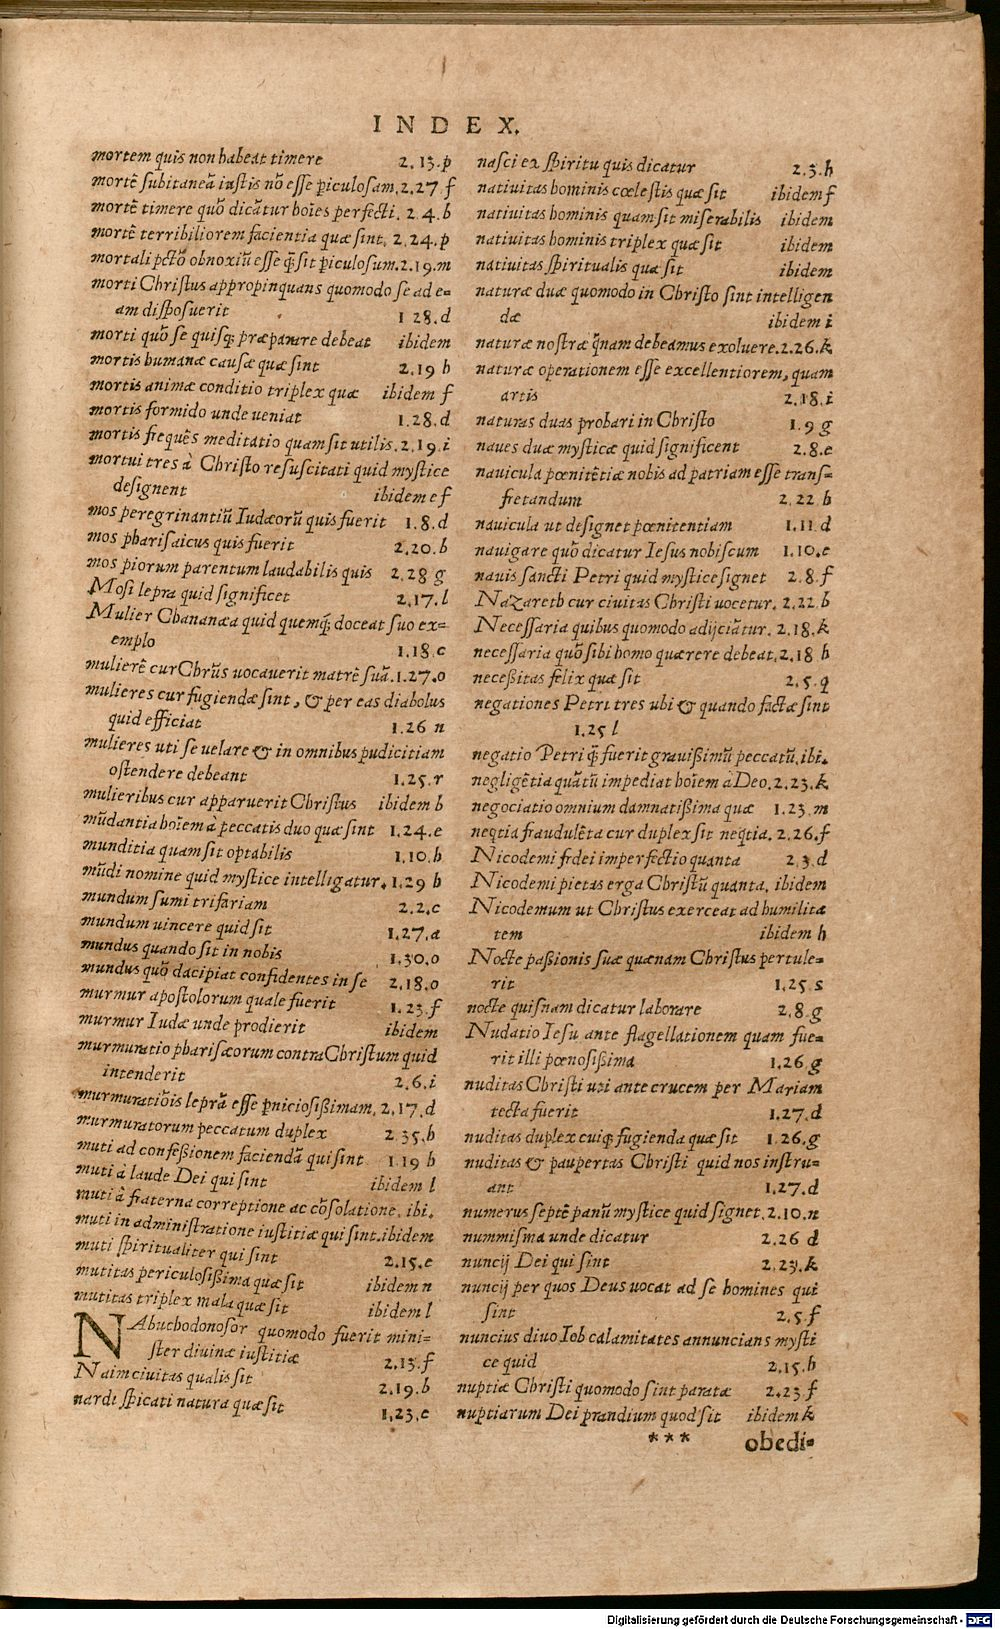 INDEX.
mortem quis non habeat timere 2.13.p
mortē subitaneā iustis nō esse ꝑiculosam. 2.27.f
mortē timere quō dicātur hoīes perfecti. 2.4.b
mortē terribiliorem facientia quæ sint. 2.24.p
mortali pctō obnoxiū esse q̃ sit ꝑiculosum. 2.19.m
morti Christus appropinquans quomodo se ad e=
am disposuerit 1 28.d
morti quō se quisq; præparare debeat ibidem
mortis humanæ causæ quæ sint 2.19 b
mortis animæ conditio triplex quæ ibidem f
mortis formido unde ueniat 1.28.d
mortis frequēs meditatio quam sit utilis. 2.19.i
mortui tres à Christo resuscitati quid mystice
designent ibidem e f
mos peregrinantiū Iudæorū quis fuerit 1.8.d
mos pharisaicus quis fuerit 2.20.b
mos piorum parentum laudabilis quis 2.28 g
Mosi lepra quid significet 2.17.l
Mulier Chananæa quid quemq; doceat suo ex=
emplo 1.18.c
mulierē cur Chrūs uocauerit matrē suā. 1.27.o
mulieres cur fugiendæ sint, & per eas diabolus
quid efficiat 1.26 n
mulieres uti se uelare & in omnibus pudicitiam
ostendere debeant 1.25.r
mulieribus cur apparuerit Christus ibidem b
mūdantia hoīem à peccatis duo quæ sint 1.24.e
munditia quam sit optabilis 1.10.h
mūdi nomine quid mystice intelligatur. 1.29 b
mundum sumi trifariam 2.2.c
mundum uincere quid sit 1.27.a
mundus quando sit in nobis 1.30.o
mundus quō dacipiat confidentes in se 2.18.o
murmur apostolorum quale fuerit 1.23.f
murmur Iudæ unde prodierit ibidem
murmuratio pharisæorum contra Christum quid
intenderit 2.6.i
murmuratiōis leprā esse ꝑniciosißimam. 2.17.d
murmuratorum peccatum duplex 2 35.h
muti ad confeßionem faciendā qui sint 1 19 b
muti à laude Dei qui sint ibidem l
muti à fraterna correptione ac cōsolatione. ibi.
muti in administratione iustitiæ qui sint. ibidem
muti spiritualiter qui sint 2.15.e
mutitas periculosißima quæ sit ibidem n
mutitas triplex mala quæ sit ibidem l
NAbuchodonosor quomodo fuerit mini=
ster diuinæ iustitiæ 2.13.f
Naim ciuitas qualis sit 2.19.b
nardi spicati natura quæ sit 1.23.c
nasci ex spiritu quis dicatur 2.3.h
natiuitas hominis cœlestis quæ sit ibidem f
natiuitas hominis quam sit miserabilis ibidem
natiuitas hominis triplex quæ sit ibidem
natiuitas spiritualis quæ sit ibidem
naturæ duæ quomodo in Christo sint intelligen
dæ ibidem i
naturæ nostræ q̃nam debeamus exoluere. 2.26.k
naturæ operationem esse excellentiorem, quam
artis 2.18.i
naturas duas probari in Christo 1.9 g
naues duæ mysticæ quid significent 2.8.e
nauicula pœnitētiæ nobis ad patriam esse trans=
fretandum 2.22 b
nauicula ut designet pœnitentiam 1.11.d
nauigare quō dicatur Iesus nobiscum 1.10.e
nauis sancti Petri quid mystice signet 2.8.f
Nazareth cur ciuitas Christi uocetur. 2.22.b
Necessaria quibus quomodo adijciātur. 2.18.k
necessaria quō sibi homo quærere debeat. 2.18 h
neceßitas felix quæ sit 2.5.q
negationes Petri tres ubi & quando factæ sint
1.25 l
negatio Petri q̃ fuerit grauißimū peccatū. ibi.
negligētia quātū impediat hoīem à Deo. 2.23.k
negociatio omnium damnatißima quæ 1.23.m
neq̃tia fraudulēta cur duplex sit neq̃tia. 2.26.f
Nicodemi fidei imperfectio quanta 2 3.d
Nicodemi pietas erga Christū quanta. ibidem
Nicodemum ut Christus exerceat ad humilita
tem ibidem h
Nocte paßionis suæ quænam Christus pertule=
rit 1.25.s
nocte quisnam dicatur laborare 2.8.g
Nudatio Iesu ante flagellationem quam fue=
rit illi pœnosißima 1.26.g
nuditas Christi uti ante crucem per Mariam
tecta fuerit 1.27.d
nuditas duplex cuiq; fugienda quæ sit 1.26.g
nuditas & paupertas Christi quid nos instru=
ant 1.27.d
numerus septē panū mystice quid signet. 2.10.n
nummisma unde dicatur 2.26 d
nuncij Dei qui sint 2.23.k
nuncij per quos Deus uocat ad se homines qui
sint 2.5.f
nuncius diuo Iob calamitates annuncians mysti
ce quid 2.15.h
nuptiæ Christi quomodo sint paratæ 2.23 f
nuptiarum Dei prandium quod sit ibidem k
*** obedi=
Digitalisierung gefördert durch die Deutsche Forschungsgemeinschaft - DFG